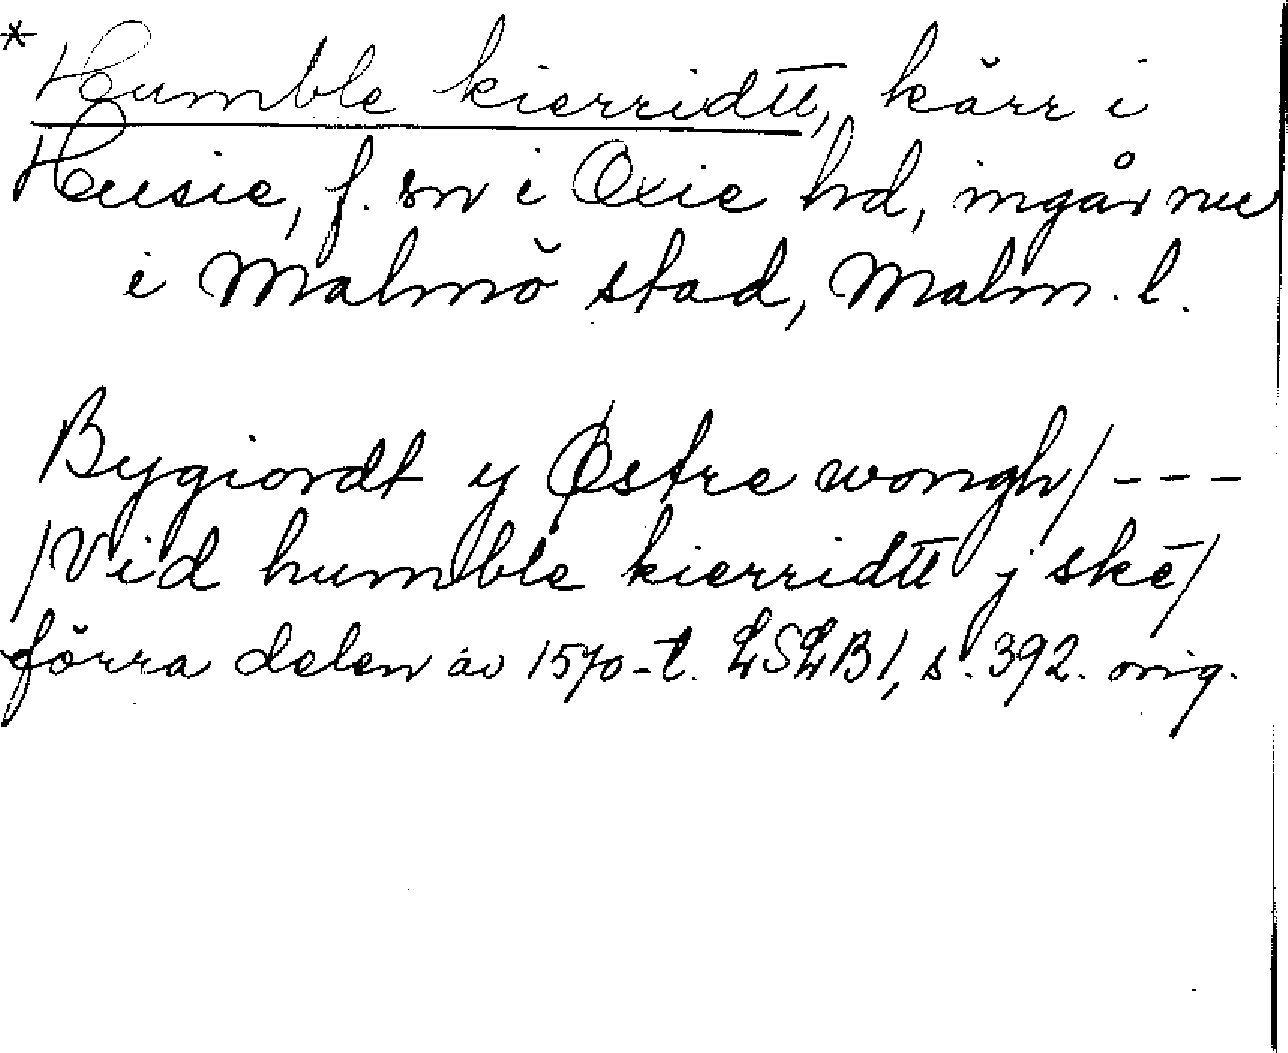 *Humble kierridtt, kärr i
Husie, f. sn i Oxie hd, ingår nu
i Malmö stad, Malm. l.
Bygiordt y Østre wongh/ ---
/Vid humble kierridtt j skē/
förra delen av 1570-t. LSLB1, s. 392. orig.